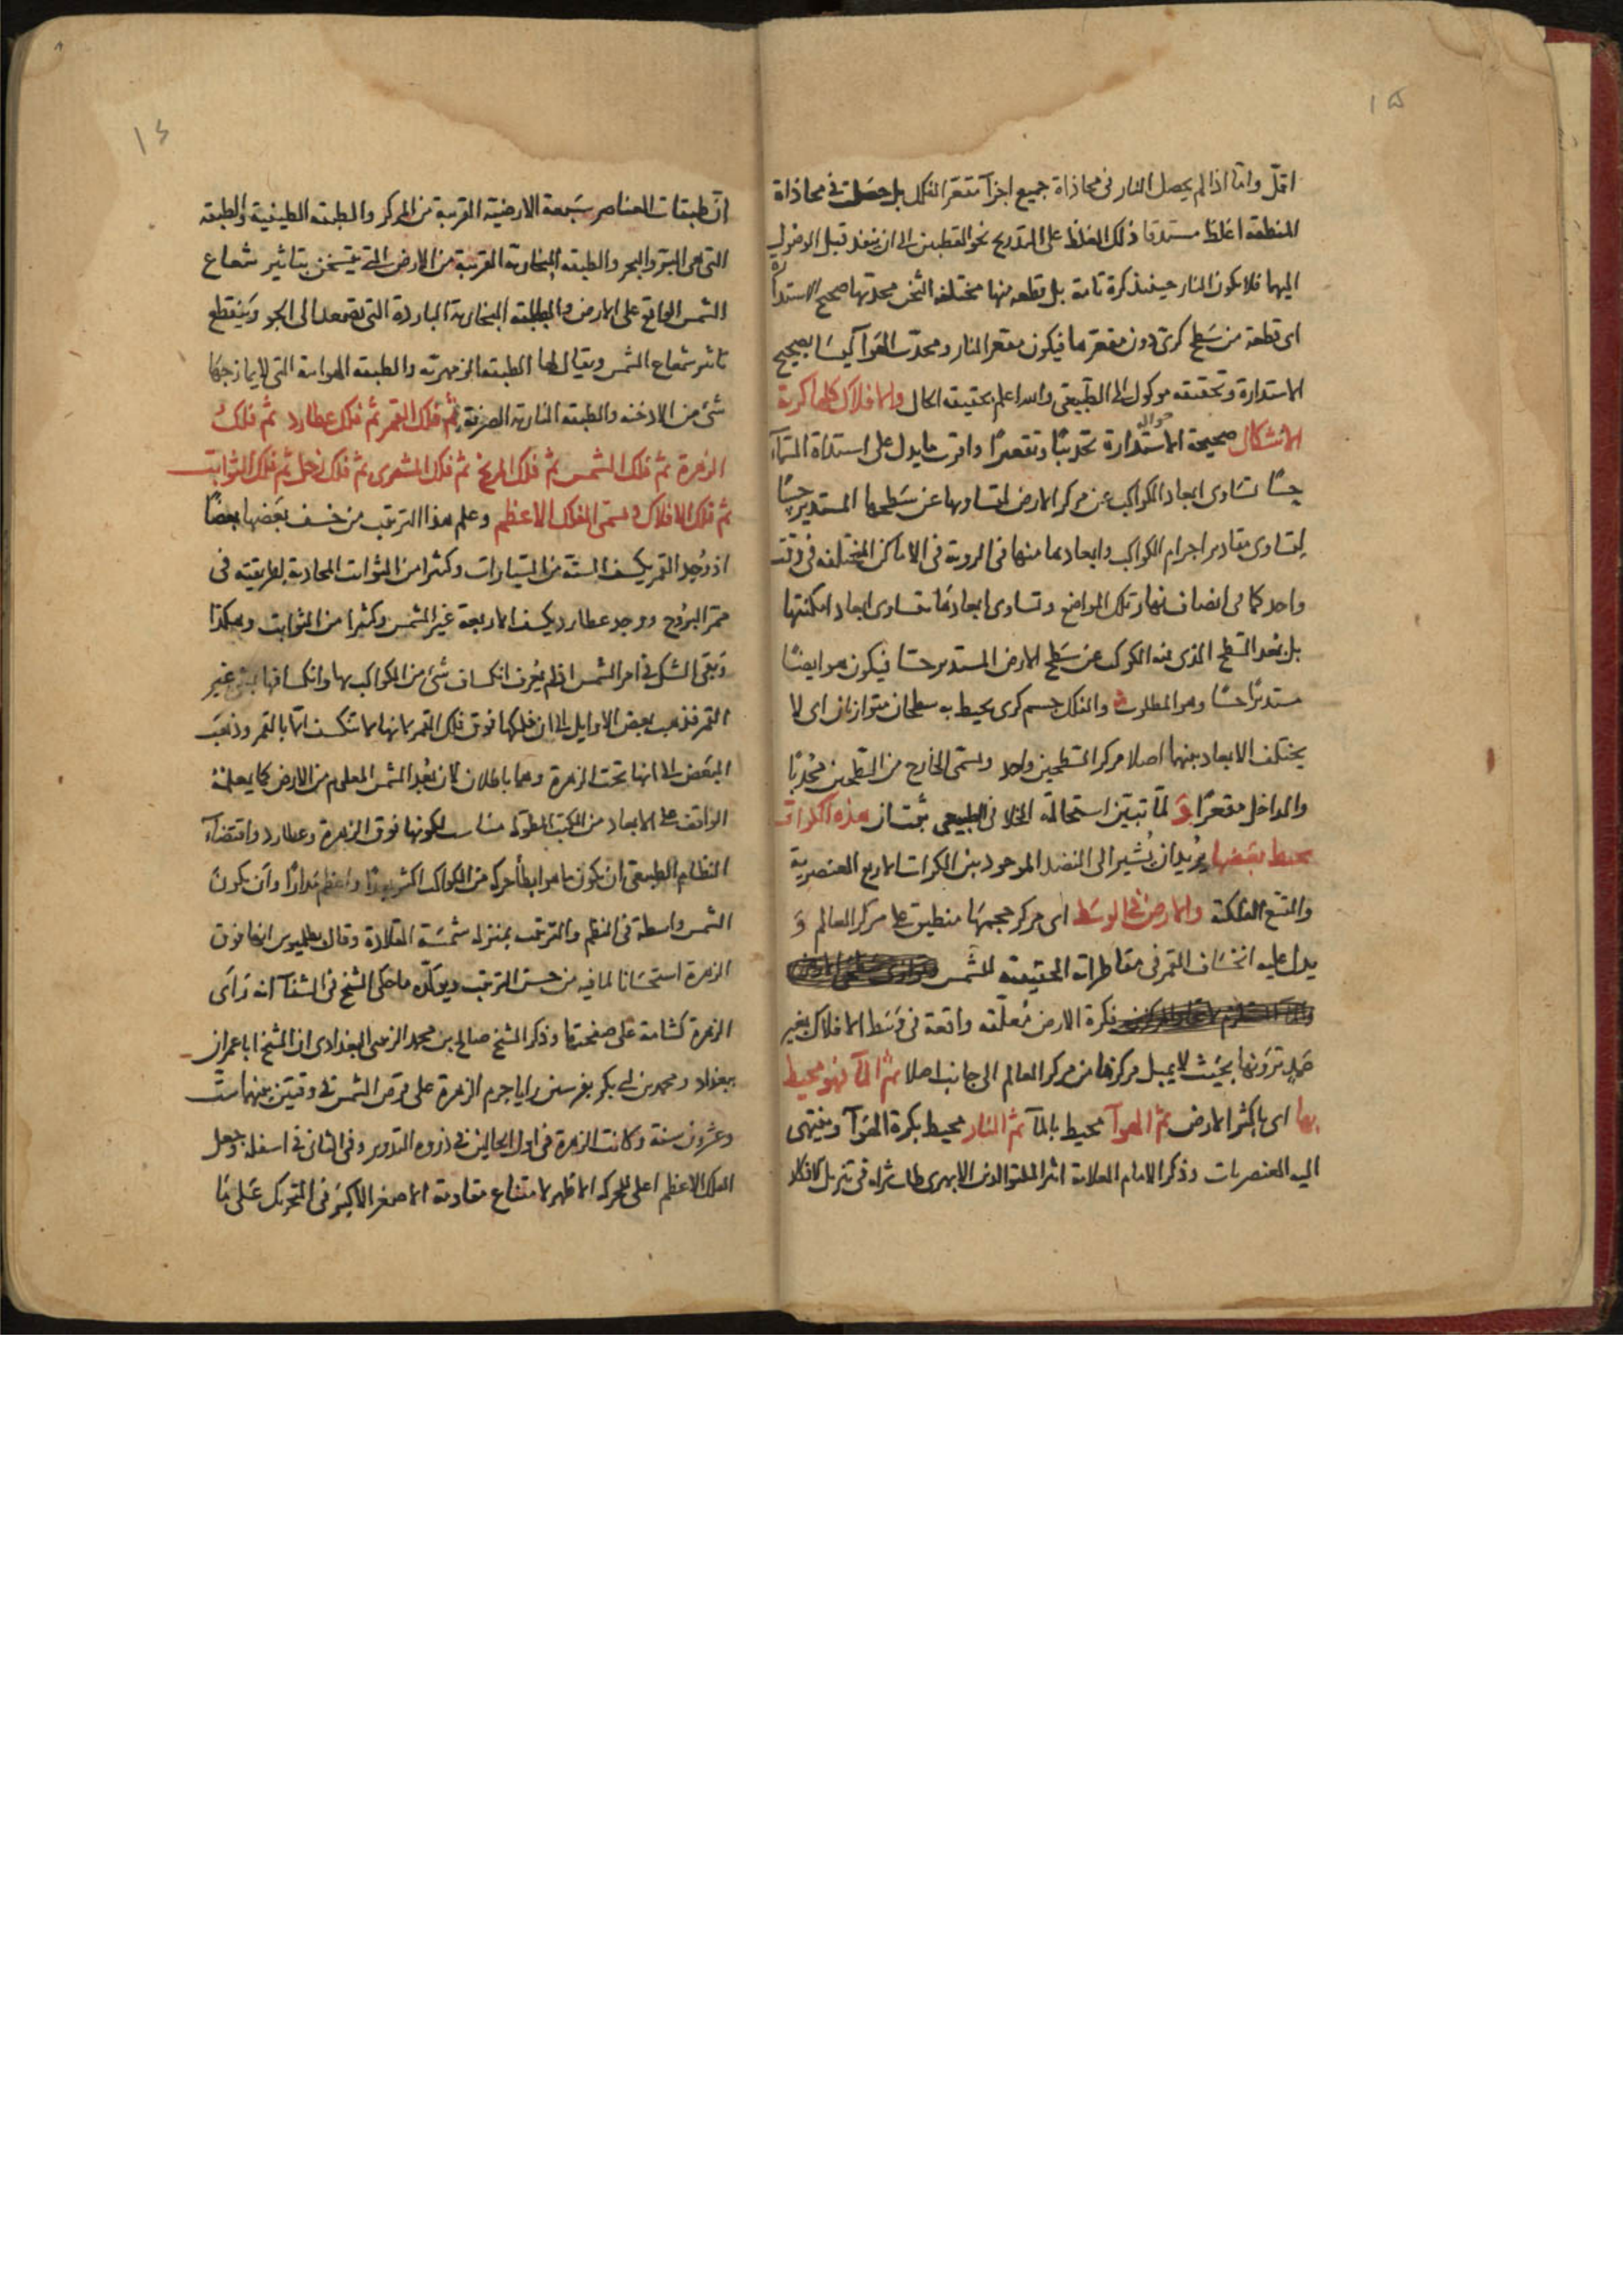 ١٥
اقل واما اذا لم يحصل النار فى محاذاة جميع اجزآ مقعر الفلك بل حصلت فى محاذاة
المنطقة اغلظ مستدقا ذلك الغلظ على التدريج نحو القطبين الى ان ينفد قبل الوصول
اليهما فلا يكون النار حينئذ كرة تامة بل قطعه منها مختلفه الثخن محدبها صحيح الاستدارة
اى قطعة من سطح كرى دون مقعرها فيكون مقعر النار ومحدب الهوآ ليسا بصحيح
الاستدارة وتحقيقه موكول الى الطبيعى والله اعلم بحقيقه الحال والافلاك كلها كرية
الاشكال صحيحة الاستدارة تحديبا وتقعيرا واقرب ما يدل على استدارة السمآ
حسًا تساوى ابعاد الكواكب عن مركز الارض لتساويها عن سطحها المستدير حسًا
لتساوى مقادير اجرام الكواكب وابعادها منها فى الروية فى الاماكن المختلفه فى وقت
واحد كما فى انصاف نهار تلك المواضع وتساوى ابعادها تساوى ابعاد امكنتها
بل بعد السطح الذى فيه الكوكب عن سطح الارض المستدير حسًا فيكون هو ايضًا
مستديرًا حسًا وهو المطلوب والفلك جسم كرى يحيط به سطحان متوازيان اى لا
يختلف الابعاد بينهما اصلا مركز السطحين واحد ويسمى الخارج من السطحين محدبًا
والداخل مقعرًا و لما تبين استحالة الخلا فى الطبيعى هذه الكرات
محيط بعضها يريد ان يشير الى النضد الموجود بين الكرات الاربع العنصرية
والتسع الفلكية والارض فى الوسط اى مركز حجمها منطبق على مركز العالم و
يدل عليه انخساف القمر فى مقاطراته الحقيقيه للشمس
فكرة الارض معلّقه واقعة فى وسط الافلاك بغير
عمد ترونها بحيث لا يميل مركزها من مركز العالم الى جانب اصلا ثم المآ فهو محيط
بها اى باكثر الارض ثم الهوآ محيط بالمآ ثم النار محيط بكرة الهوآ وينتهى
اليه العنصريات وذكر الامام العلامة اثير الملة والدين الابهرى طاب ثراه فى
١٤
ان طبقات العناصر سبعة الارضية القريبة من المركز والطبقه الطينية والطبقه
التى هى البر والبحر والطبقه البخارية القريبة من الارض التى يتسخن بتاثير شعاع
الشمس الواقع على الارض والطبقه البخارية الباردة التى تصعد الى الجو وينقطع
تاثير شعاع الشمس ويقال لها الطبقه الزمهرية والطبقه الهوائية التى لا يمازجها
شئ من الادخنه والطبقه النارية الصرفة ثم فلك القمر ثم فلك عطارد ثم فلك
الزهرة ثم فلك الشمس ثم فلك المريخ ثم فلك المشترى ثم فلك زحل ثم فلك الثوابت
ثم فلك الافلاك ويسمى الفلك الاعظم وعلم هذا الترتيب من خسف بعضها بعضًا
اذ وجد القمر يكسف الستة من السيارات وكثيرا من الثوابت المحاذية لطريقته فى
ممر البروج ووجد عطارد يكسف الاربعة غير الشمس وكثيرا من الثوابت وهكذا
وبقى الشك فى امر الشمس اذ لم يعرف انكساف شئ من الكواكب بها وانكسافها بشئ غير
القمر فذهب بعض الاوايل الى ان فلكها فوق فلك القمر لانها لا تنكسف الا بالقمر وذهب
البعض الى انها تحت الزهرة وهما باطلان لان بعد الشمس المعلوم من الارض كما يعلمه
الواقف على الابعاد من الكتب المطوله مناسب لكونها فوق الزهرة وعطارد واقتضآ
النظام الطبيعى ان يكون ما هو ابطأ حركه من الكواكب اكثر بعدًا واعظم مدارًا وان يكون
الشمس واسطة فى النظم والترتيب بمنزله شمسة القلادة وقال بطلميوس انها فوق
الزهرة استحسانا لما فيه من حسن الترتيب ويوكّده ما حكى الشيخ فى الشفآ انه رأى
الزهرة كشامة على صفحتها وذكر الشيخ صالح بن محمد الزينبى البغدادى ان الشيخ ابا عمران
ببغداد ومحمد بن ابى بكر بفرسين رايا جرم الزهرة على قرص الشمس فى وقتين بينهما ستّ
وعشرون سنة وكانت الزهرة فى اول الحالين فى ذروه التدوير وفى الثانى فى اسفله وجعل
الفلك الاعظم اعلى للحركه الاظهر لامتناع مقاومة الاصغر الاكبر فى التحريك على ما